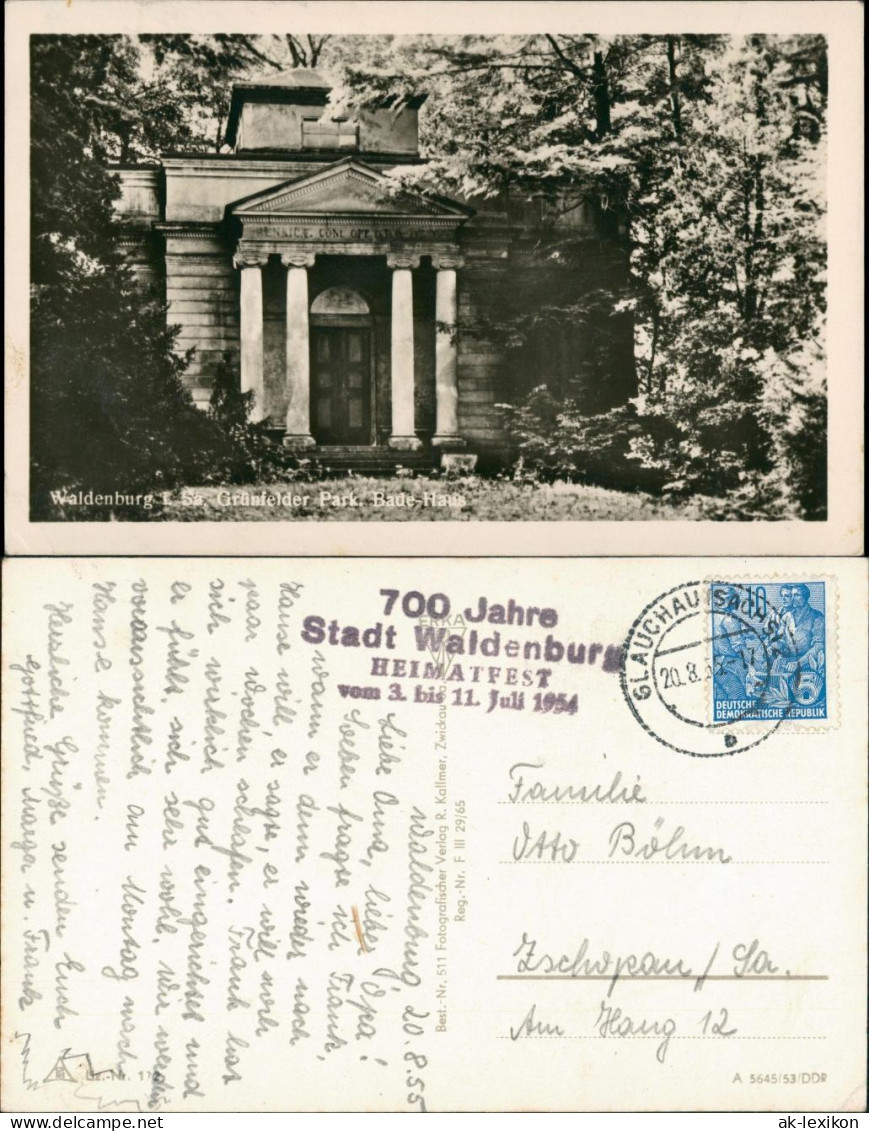 Waldenburg i. Sa. Grünfelder Park. Bade-Haus
700 Jahre
Stadt Waldenburg
HEIMATFEST
vom 3. bis 11. Juli 1954
GLAUCHAU (SACHS)
20.8.
10
5
DEUTSCHE
DEMOKRATISCHE REPUBLIK
ERKA
Waldenburg 20.8.55
Liebe Oma, lieber Opa!
Soeben fragte ich Frank,
wann er denn wieder nach
Hause will, er sagte, er will noch
paar Wochen schlafen. Frank hat
sich wirklich gut eingerichtet und
er fühlt sich sehr wohl. Wir werden
voraussichtlich am Montag nach
Hause kommen.
Herzliche Grüße senden Euch
Gottfried, Marga u. Frank
Best.-Nr. 511 Fotografischer Verlag R. Kallmer, Zwickau
Reg.-Nr. F III 29/65
Familie
Otto Böhm
Zschopau / Sa.
Am Hang 12
A 5645/53/DDR
www.delcampe.net
ak-lexikon